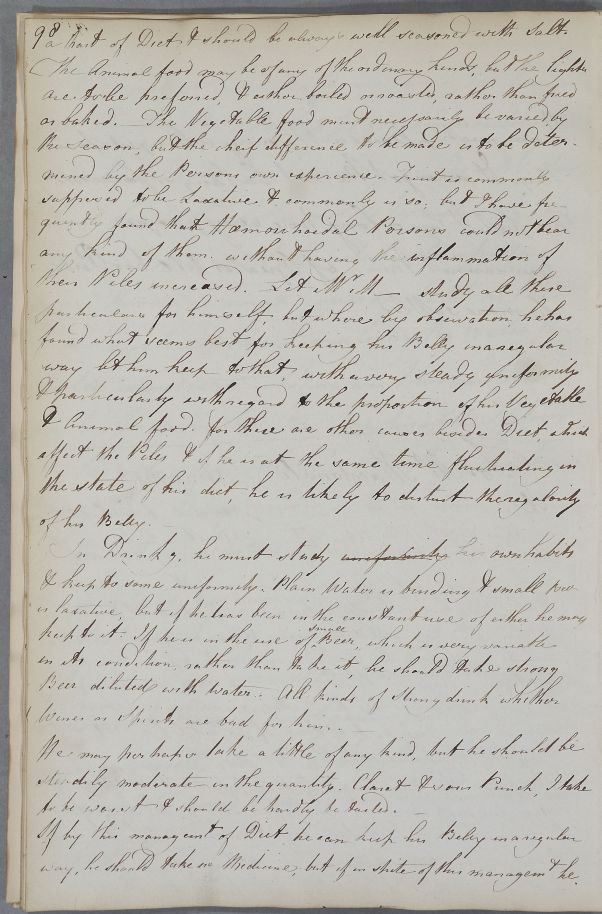 98
a part of Diet & should be always well seasoned with salt.
The Animal food may be of any of the ordinary kinds, but the lighter
are to be preferred, & either boiled or roasted, rather than fried
or baked. – The Vegetable food must necessarily be varied by
the season, but the cheif difference to be made is to be deter-
mined by the Persons own experience. Fruit is commonly
supposed to be Laxative & commonly is so; but I have fre
quently found that Hæmorrhoidal Persons could not bear
any kind of them, without having the inflammation of
their Piles increased. Let Mr. M— study all these
particulars for himself, but where by observation he has
found what seems best for keeping his Belly in a regular
way let him keep to that, with a very steady uniformity
& particularly with regard to the proportion of his Vegetable
& Animal food. for there are other causes besides Diet, which
affect the Piles & if he is at the same time fluctuating in
the state of his diet he is likely to disturb the regularity
of his Belly. –
In Drinks, he must study uniformity his own habits
& keep to some uniformity. Plain Water is binding & small
is laxative, but if he has been in the constant use of either he may
keep to it. If he is in the use of small Beer, which is very variable
in its condition, rather than take it, he should take strong
Beer diluted with water. – All kinds of Strong drink whether
Wines or Spirits are bad for him. –
He may perhaps take a little of any kind, but he should be
steadily moderate in the quantity. Claret & sour Punch, I take
to be worst & should be hardly be tasted. –
If by this managemt of Diet he can keep his Belly in a regular
way, he should take no Medicine; but if in spite of this managemt he.